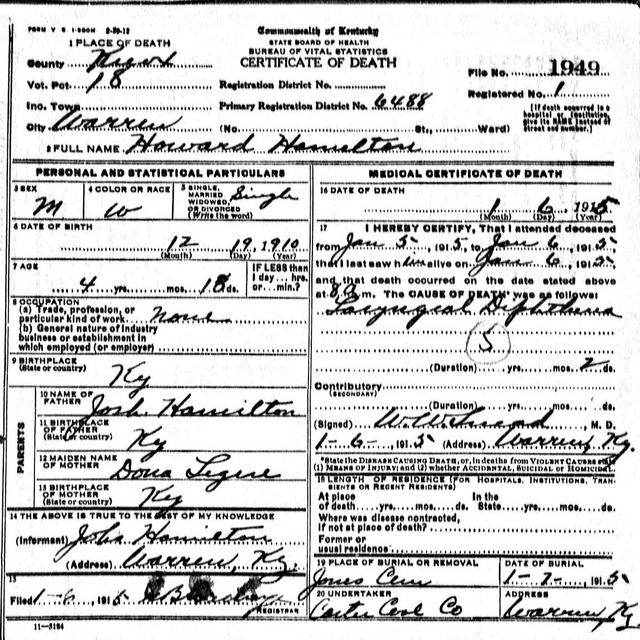 FORM V S 1-200M 2-29-12
Commonwealth of Kentucky
STATE BOARD OF HEALTH
BUREAU OF VITAL STATISTICS
CERTIFICATE OF DEATH
1 PLACE OF DEATH
County Knox
Vot. Pct 18
Ino. Town
City Warren
Registration District No.
Primary Registration District No. 6488
(No St., Ward)
File No. 1949
Registered No. 1
[If death occurred in a hospital or institution, give its NAME instead of street and number.]
2 FULL NAME Howard Hamilton
PERSONAL AND STATISTICAL PARTICULARS
3 SEX M
4 COLOR OR RACE W
5 SINGLE, MARRIED WIDOWED, OR DIVORCED (Write the word) Single
6 DATE OF BIRTH
12 19, 1910
(Month) (Day) (Year)
7 AGE
4 yrs. mos. 18 ds.
IF LESS than 1 day... hrs. or... min.?
8 OCCUPATION
(a) Trade, profession, or particular kind of work None
(b) General nature of industry business or establishment in which employed (or employer)
9 BIRTHPLACE (State or country) Ky
PARENTS
10 NAME OF FATHER Josh. Hamilton
11 BIRTHPLACE OF FATHER (State or country) Ky
12 MAIDEN NAME OF MOTHER Dona
13 BIRTHPLACE OF MOTHER (State or country) Ky
14 THE ABOVE IS TRUE TO THE BEST OF MY KNOWLEDGE
(Informant) Hamilton
(Address) Warren, Ky.
15
Filed 1-6, 1915
REGISTRAR
11-3184
MEDICAL CERTIFICATE OF DEATH
16 DATE OF DEATH
1 6, 1915
(Month) (Day) (Year)
17 I HEREBY CERTIFY, That I attended deceased
from Jan 5, 1915, to Jan 6, 1915,
that I last saw him alive on Jan 6, 1915,
and that death occurred on the date stated above
at 8 a.m. The CAUSE OF DEATH* was as follows:
Laryngial Diphtheria
5
(Duration) yrs. mos. 2 ds.
Contributory (SECONDARY)
(Duration) yrs. mos. ds.
(Signed) M. D.
1-6-, 1915 (Address) Warren, Ky.
*State the DISEASE CAUSING DEATH, or, in deaths from VIOLENT CAUSES state (1) MEANS OF INJURY; and (2) whether ACCIDENTAL, SUICIDAL or HOMICIDAL.
18 LENGTH OF RESIDENCE (FOR HOSPITALS, INSTITUTIONS, TRANSIENTS OR RECENT RESIDENTS)
At place of death yrs. mos. ds. In the State yrs. mos. ds.
Where was disease contracted, if not at place of death?
Former or usual residence
19 PLACE OF BURIAL OR REMOVAL Jones Cem
DATE OF BURIAL 1-7-, 1915
20 UNDERTAKER Carter Coal Co
ADDRESS Warren, Ky